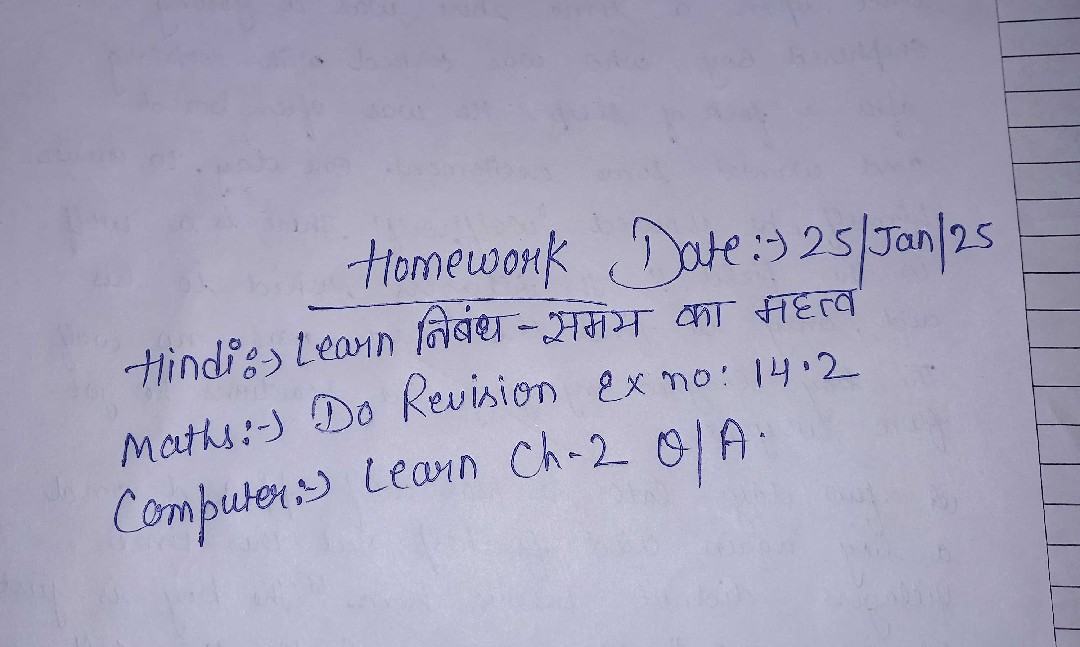 Homework Date:→ 25/Jan/25
Hindi:→ Learn निबंध - समय का महत्व
Maths:→ Do Revision ex no: 14.2
Computer:→ Learn Ch-2 Q/A.